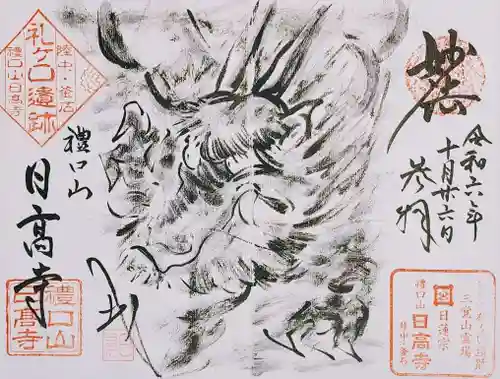 妙法
令和六年
十月廿六日
参拝
礼ヶ口遺跡
陸中・釜石
禮口山日高寺
禮口山
日高寺
禮口山
日高寺
三寶山霊場
日蓮宗
禮口山
日高寺
陸中・釜石